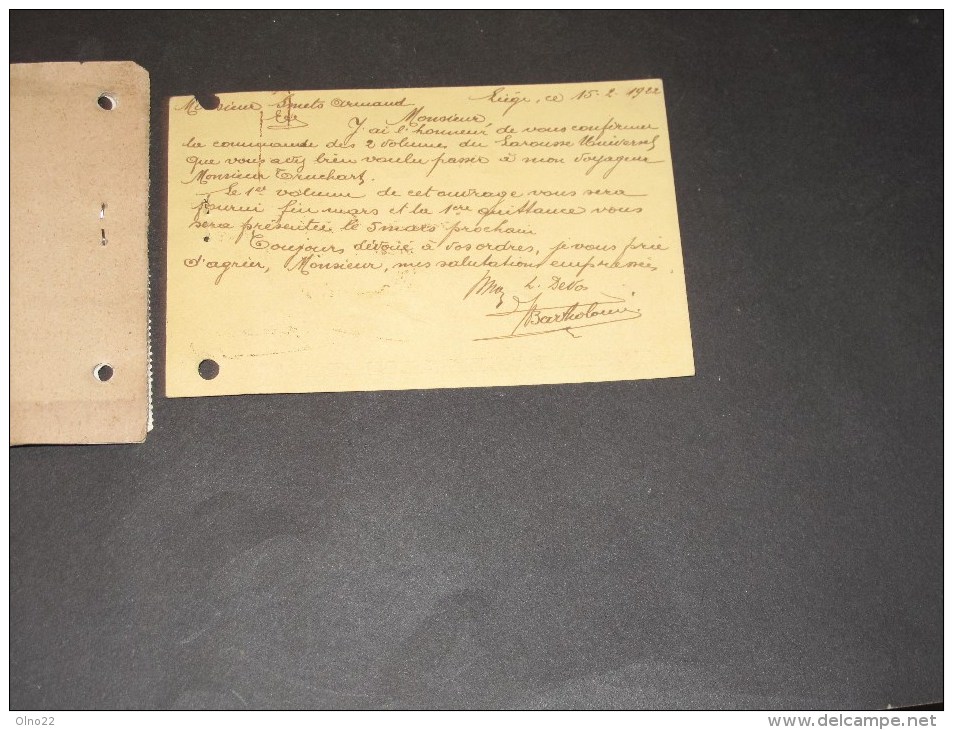 Monsieur Smets Armand Liège, ce 15-2-1922
Monsieur
J'ai l'honneur de vous confirmer
la commande des 2 volumes du Larousse Universel
que vous avez bien voulu passer à mon voyageur
Monsieur Truchart.
Le 1er volume de cet ouvrage vous sera
fourni fin mars et la 1ère quittance vous
sera présentée le 5 mars prochain
Toujours dévoué à vos ordres, je vous prie
d'agréer, Monsieur, mes salutations empressées.
L. Devos
Bartholomé
Olno22
www.delcampe.net